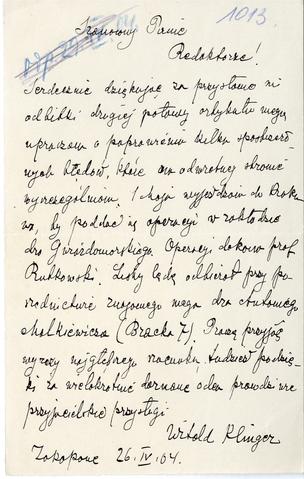 1013
Szanowny Panie
Redaktorze!
Serdecznie dziękując za przysłane mi
odbitki drugiej połowy artykułu mego
upraszam o poprawienie kilku spostrzeżo-
nych błędów, które na odwrotnej stronie
wyszczególniam. 1 maja wyjeżdżam do Krako-
wa, by poddać się operacji w zakładzie
dra Gwiazdomorskiego. Operacji dokona prof.
Rutkowski. Listy będę odbierał przy po-
średnictwie znajomego mego dra Antoniego
Małkiewicza (Bracka 7). Proszę przyjąć
wyrazy najgłębszego szacunku, tudzież podzię-
ki za wielokrotnie doznane odeń prawdziwie
przyjacielskie przysługi
Witold Klinger
Zakopane 26. IV. 04.